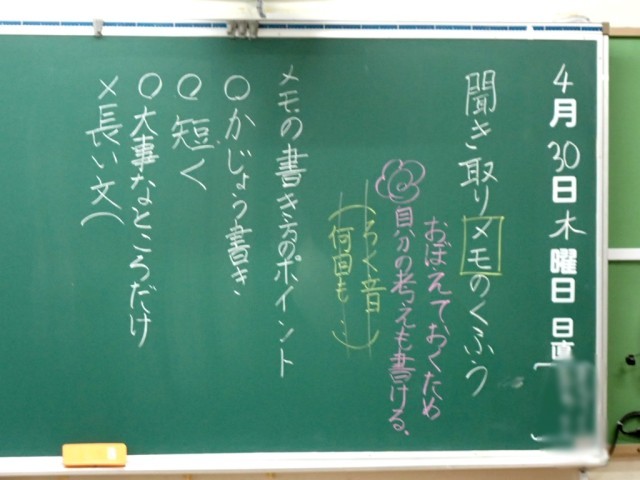 4月30日木曜日 日直
聞き取りメモのくふう
おぼえておくため
自分の考えも書ける、
ろく音
何回も…
メモの書き方のポイント
○かじょう書き
○短く
○大事なところだけ
×長い文